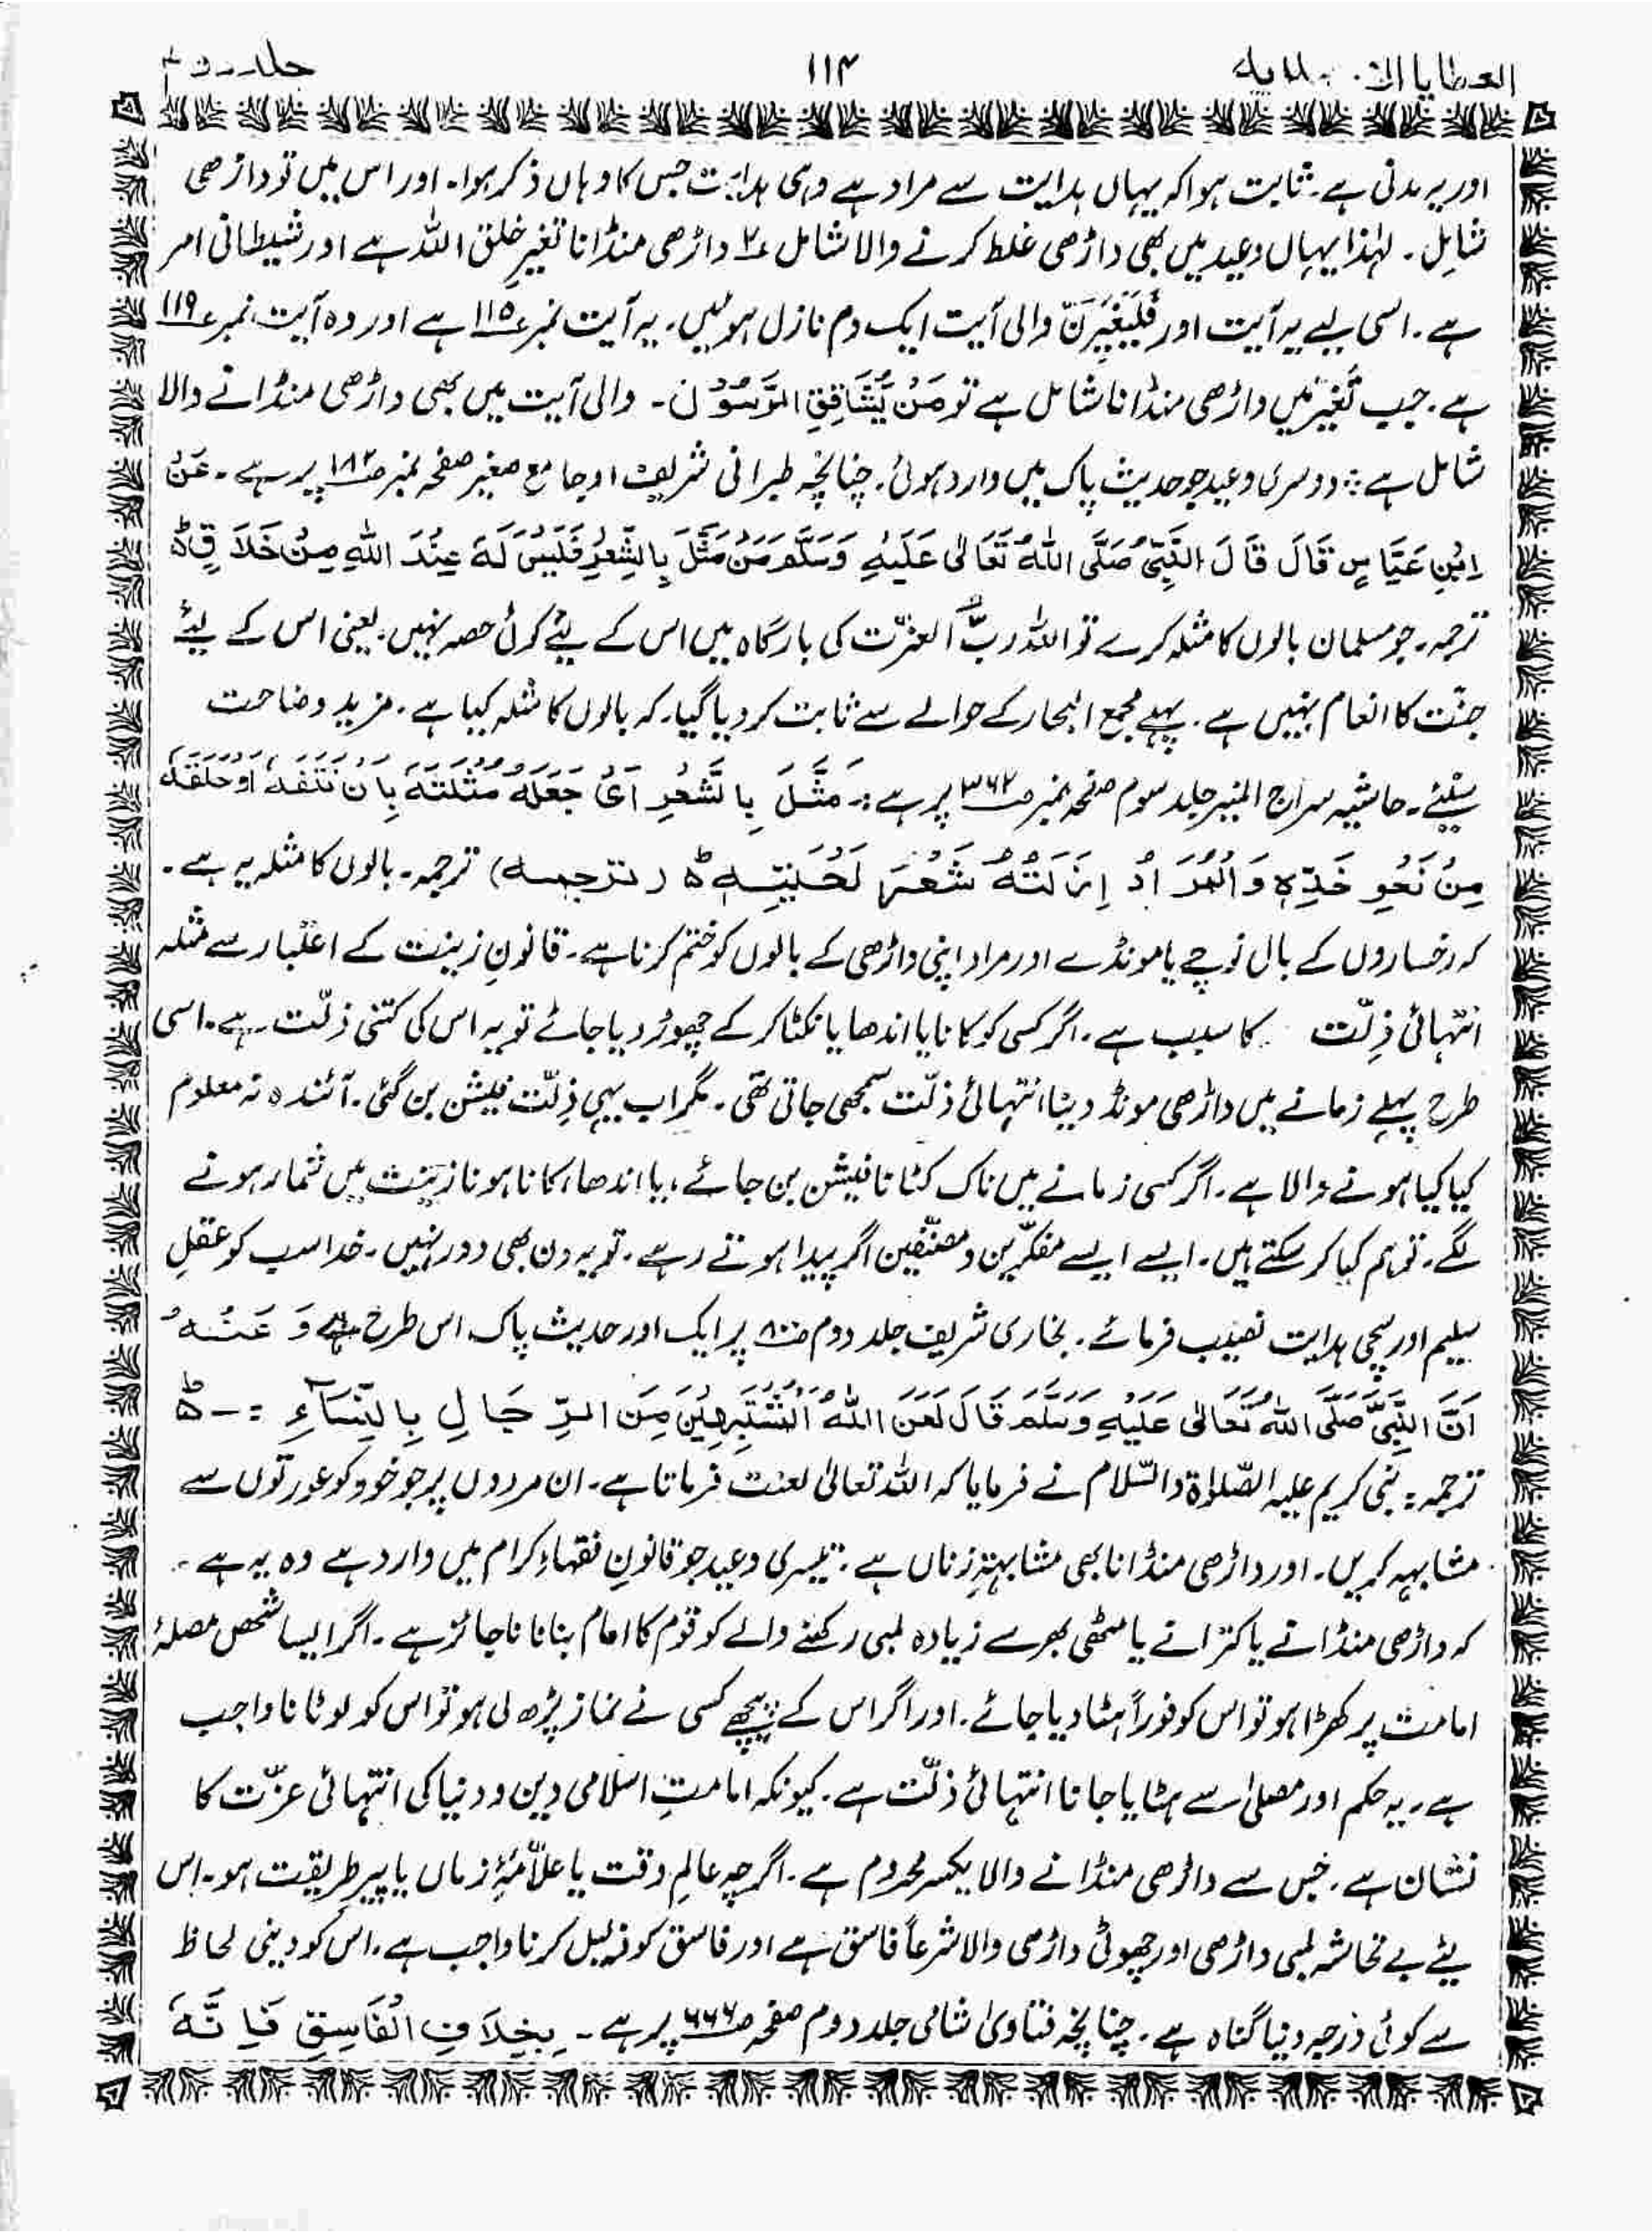 العطایا الا
۱۱۴
جلد دوم
اور یہ مدنی ہے۔ ثابت ہوا کہ یہاں ہدایت سے مراد ہے وہی ہدایت جس کا وہاں ذکر ہوا۔ اور اس میں تو داڑھی
شامِل۔ لہٰذا یہاں وعید میں بھی داڑھی غلط کرنے والا شامل داڑھی منڈانا تغیرِ خلق اللہ ہے اور شیطانی امر
ہے۔ اسی لیے یہ آیت اور فَلَیُغَیِّرَنَّ والی آیت ایک دم نازل ہوئیں۔ یہ آیت نمبر ۱۱۵ ہے اور وہ آیت نمبر ۱۱۹
ہے۔ جب تَغَیّر میں داڑھی منڈانا شامل ہے تو مَنْ یُّشَاقِقِ الرَّسُوْلَ۔ والی آیت میں بھی داڑھی منڈانے والا
شامل ہے: دوسری وعید جو حدیث پاک میں وارد ہوئی۔ چنانچہ طبرانی شریف او جامع صغیر صفحہ نمبر صـ۱۸۲ پر ہے۔ عَنْ
اِبْنِ عَبَّاسٍ قَالَ قَالَ النَّبِیُّ صَلَّی اللہُ تَعَالٰی عَلَیْہِ وَسَلَّمَ مَنْ مَثَّلَ بِالشَّعْرِ فَلَیْسَ لَہٗ عِنْدَ اللہِ مِنْ خَلَاقٍ ط
ترجمہ۔ جو مسلمان بالوں کا مثلہ کرے تو اللہ ربُّ العزّت کی بارگاہ میں اس کے لیٔے کوئی حصہ نہیں۔ یعنی اس کے لیٔے
جنّت کا انعام نہیں ہے۔ پہلے مجمع البحار کے حوالے سے ثابت کر دیا گیا۔ کہ بالوں کا مثلہ کیا ہے۔ مزید وضاحت
سنیٔے۔ حاشیہ سراج المنیر جلد سوم صفحہ نمبر صـ۳۶۲ پر ہے:۔ مَثَّلَ بِالشَّعْرِ اَیْ جَعَلَہٗ مُثْلَتَہٗ بِاَنْ نَتَفَہٗ اَوْ حَلَقَہٗ
مِنْ نَحْوِ خَدِّہٖ وَالْمُرَادُ اِزَالَتُہٗ شَعْرَ لَحْیَتِہٖ ط (ترجمہ) ترجمہ۔ بالوں کا مثلہ یہ ہے۔
کہ رخساروں کے بال نوچے یا مونڈے اور مراد اپنی داڑھی کے بالوں کو ختم کرنا ہے۔ قانونِ زینت کے اعتبار سے مثلہ
انتہائی ذِلّت کا سبب ہے۔ اگر کسی کو کانا یا اندھا یا نکٹا کر کے چھوڑ دیا جائے تو یہ اس کی کتنی ذلّت ہے۔ اسی
طرح پہلے زمانے میں داڑھی مونڈ دینا انتہائی ذلّت سمجھی جاتی تھی۔ مگر اب یہی ذِلّت فیشن بن گئی۔ آئندہ نہ معلوم
کیا کیا ہونے والا ہے۔ اگر کسی زمانے میں ناک کٹانا فیشن بن جائے، یا اندھا، کانا ہونا زینت میں شمار ہونے
لگے۔ تو ہم کیا کر سکتے ہیں۔ ایسے ایسے مفکّرین و مصنّفین اگر پیدا ہوتے رہے۔ تو یہ دن بھی دور نہیں۔ خدا سب کو عقلِ
سلیم اور سچی ہدایت نصیب فرمائے۔ بخاری شریف جلد دوم پر ایک اور حدیث پاک اس طرح ہے وَ عَنْہُ
اَنَّ النَّبِیَّ صَلَّی اللہُ تَعَالٰی عَلَیْہِ وَسَلَّمَ قَالَ لَعَنَ اللہُ الْمُتَشَبِّہِیْنَ مِنَ الرِّجَالِ بِالنِّسَآءِ :- ط
ترجمہ: نبی کریم علیہ الصّلوٰۃ والسّلام نے فرمایا کہ اللہ تعالیٰ لعنت فرماتا ہے۔ ان مردوں پر جو خود کو عورتوں سے
مشابہہ کریں۔ اور داڑھی منڈانا بھی مشابہۃِ زناں ہے: تیسری وعید جو قانونِ فقہاءِ کرام میں وارد ہے وہ یہ ہے۔
کہ داڑھی منڈاتے یا کتراتے یا مٹھی بھر سے زیادہ لمبی رکھنے والے کو قوم کا امام بنانا ناجائز ہے۔ اگر ایسا شخص مصلۂ
امامت پر کھڑا ہو تو اس کو فوراً ہٹا دیا جائے۔ اور اگر اس کے پیچھے کسی نے نماز پڑھ لی ہو تو اس کو لوٹانا واجب
ہے۔ یہ حکم اور مصلیٰ سے ہٹایا جانا انتہائی ذلّت ہے۔ کیونکہ امامتِ اسلامی دین و دنیا کی انتہائی عزّت کا
نشان ہے۔ جس سے داڑھی منڈانے والا یکسر محروم ہے۔ اگرچہ عالمِ وقت یا علاّمۂ زماں یا پیرِ طریقت ہو۔ اس
لیٔے بے تحاشہ لمبی داڑھی اور چھوٹی داڑھی والا شرعاً فاسق ہے اور فاسق کو ذلیل کرنا واجب ہے۔ اس کو دینی لحاظ
سے کوئی درجہ دینا گناہ ہے۔ چنانچہ فتاویٰ شامی جلد دوم صفحہ صـ۶۶۶ پر ہے۔ بِخِلَافِ الْفَاسِقِ فَاِنَّہٗ